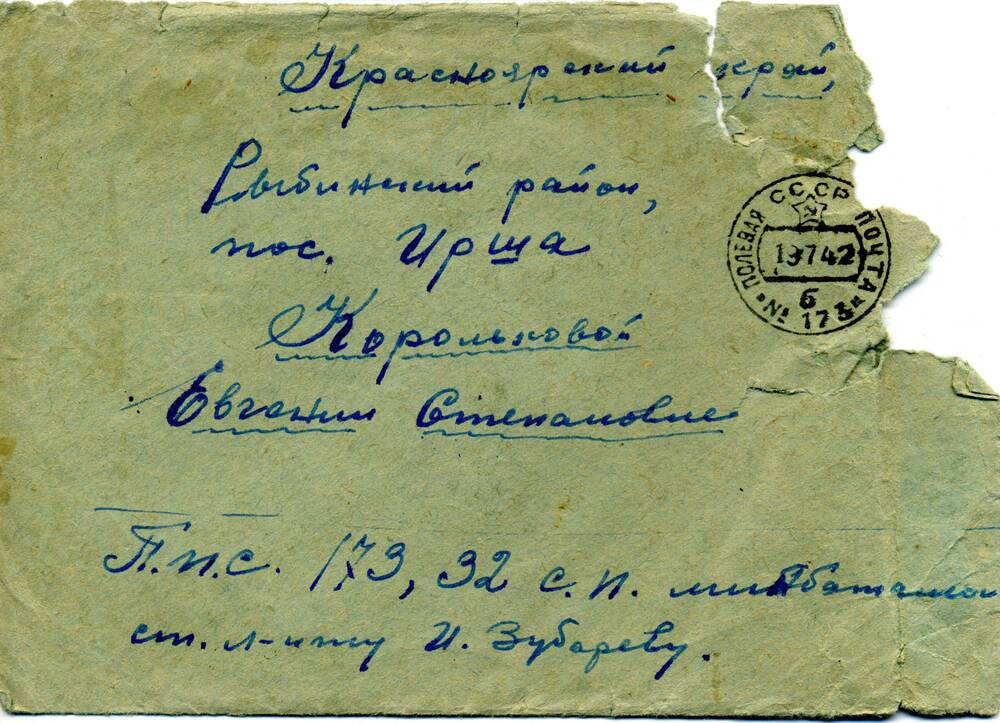 Красноярский край,
Рыбинский район,
пос. Ирша
Корольковой
Евгении Степановне
П.п.с. 173, 32 с.п.
ст. л-нту И. Зубареву.
ПОЛЕВАЯ СССР ПОЧТА
19742
б
№ 173